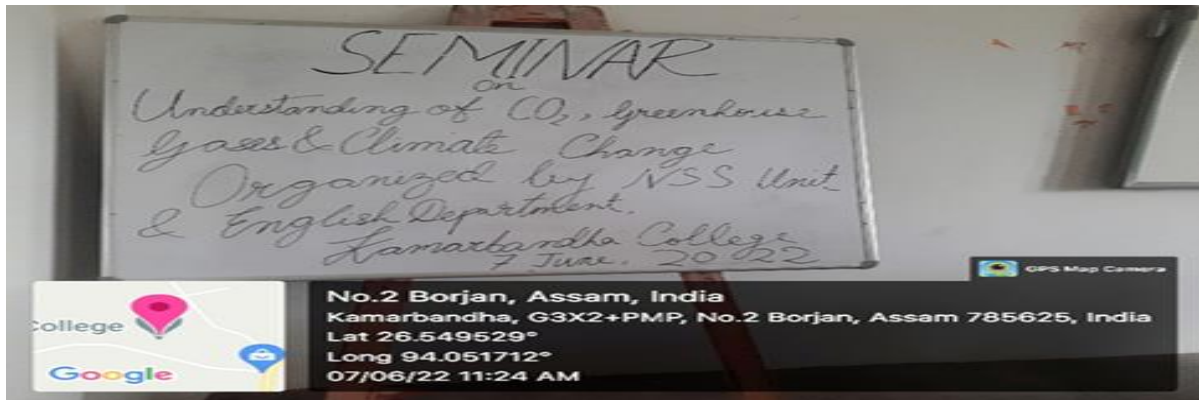 SEMINAR
on
Understanding of CO2, Greenhouse
Gases & Climate Change
Organized by NSS Unit
& English Department.
Kamarbandha College
7 June. 2022
GPS Map Camera
College
Google
No.2 Borjan, Assam, India
Kamarbandha, G3X2+PMP, No.2 Borjan, Assam 785625, India
Lat 26.549529°
Long 94.051712°
07/06/22 11:24 AM